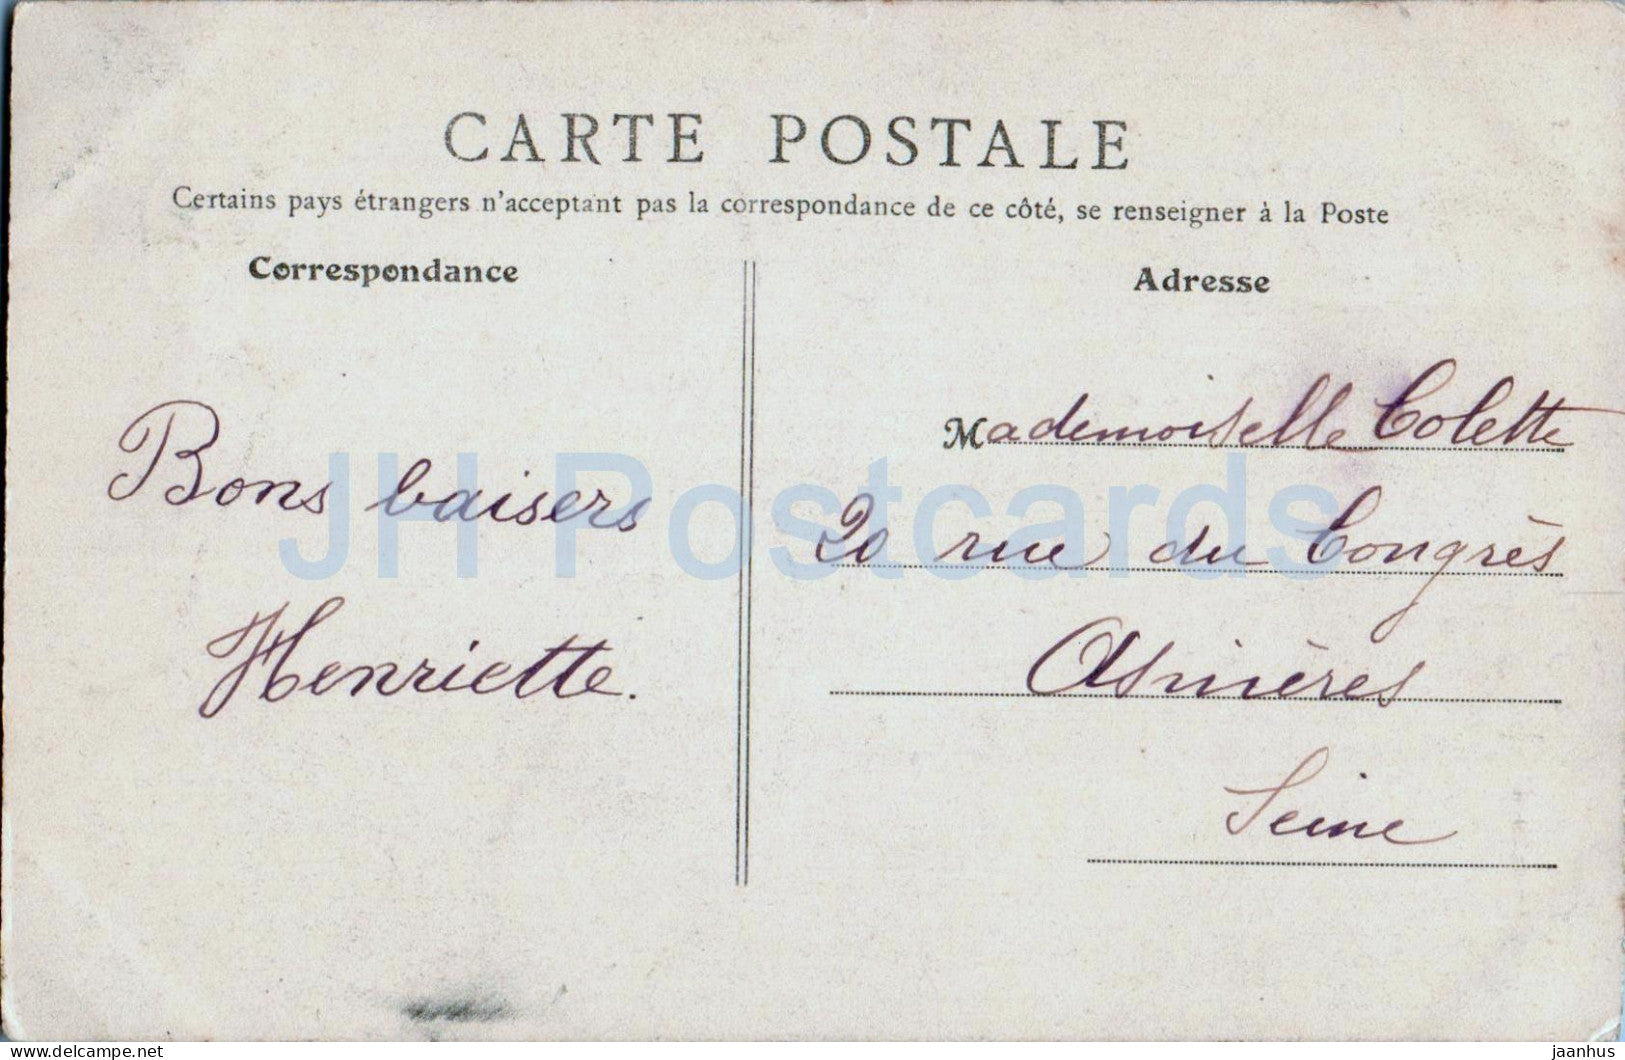 CARTE POSTALE
Certains pays étrangers n'acceptant pas la correspondance de ce côté, se renseigner à la Poste
Correspondance
Adresse
Bons baisers
Henriette.
Mademoiselle Colette
20 rue du Congrès
Asnières
Seine
JH Postcards
delcampe.net
jaanhus